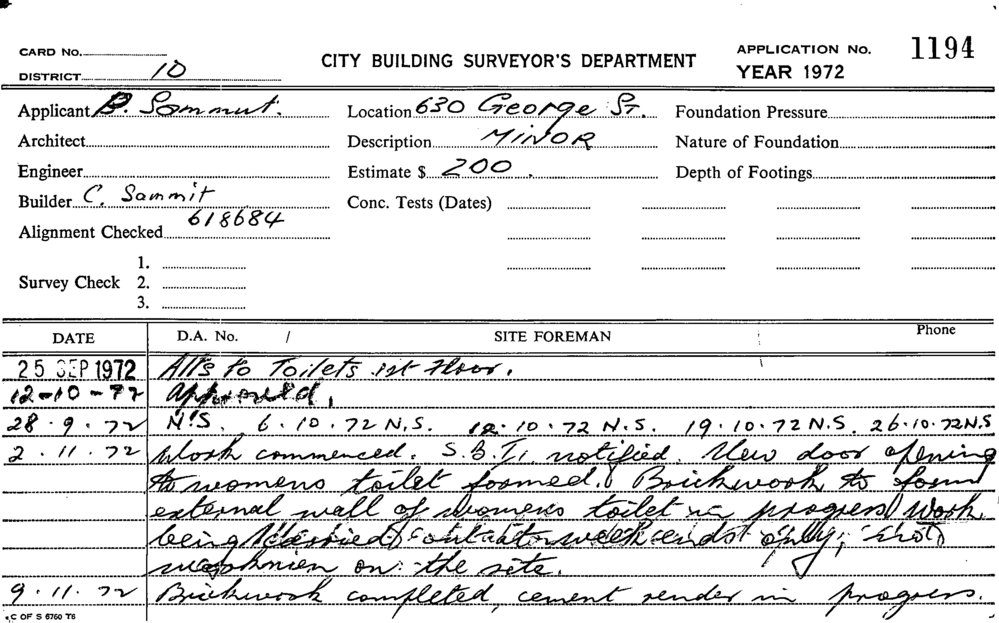 CARD No.
CITY BUILDING SURVEYOR'S DEPARTMENT
APPLICATION No. 1194
DISTRICT 10
YEAR 1972
Applicant B. Sammut.
Location 630 George St.
Foundation Pressure
Architect
Description MINOR
Nature of Foundation
Engineer
Estimate $ 200.
Depth of Footings
Builder C. Sammit
Conc. Tests (Dates)
618684
Alignment Checked
1.
Survey Check 2.
3.
DATE D.A. No. / SITE FOREMAN Phone
25 SEP 1972 Alts to Toilets 1st Floor.
12-10-72 Approved.
28.9.72 N.S. 6.10.72 N.S. 12.10.72 N.S. 19.10.72 N.S. 26.10.72 N.S
2.11.72 Work commenced. S.B.I. notified. New door opening
to womens toilet formed. Brickwork to form
external wall of womens toilet in progress Work
being carried out at week ends only, no
workmen on the site.
9.11.72 Brickwork completed, cement render in progress.
C OF S 6760 T6